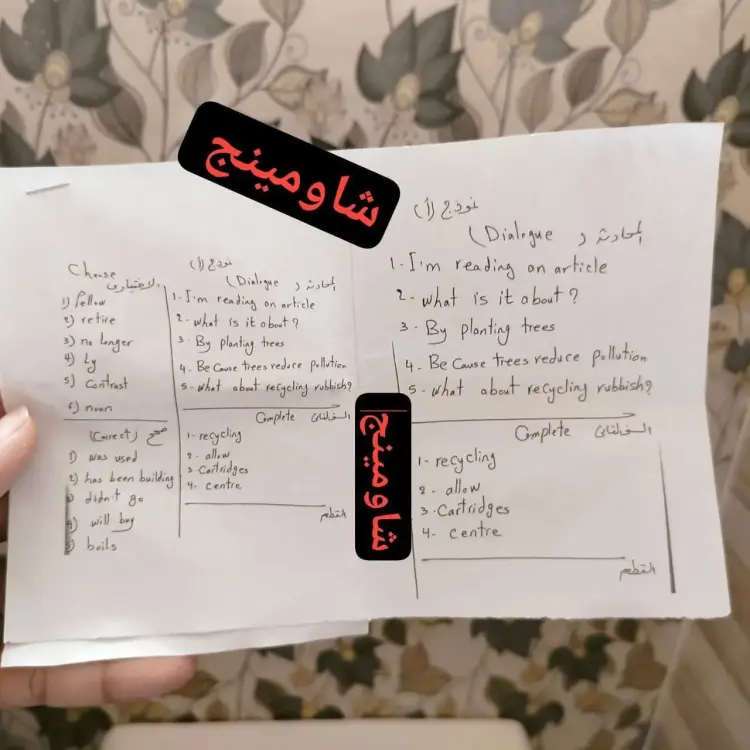 شاومينج
نموذج (أ)
Choose الاختياري
1) Fellow
2) retire
3) no longer
4) Ly
5) Contrast
6) noun
(Correct) صحح
1) was used
2) has been building
3) didn't go
4) will buy
5) boils
المحادثة (Dialogue
1- I'm reading an article
2- what is it about?
3- By planting trees
4. Because trees reduce pollution
5- what about recycling rubbish?
Complete
1- recycling
2- allow
3- Cartridges
4- centre
القطعه
شاومينج
نموذج (أ)
المحادثة (Dialogue
1- I'm reading an article
2- what is it about?
3- By planting trees
4. Because trees reduce pollution
5- what about recycling rubbish?
Complete
1- recycling
2- allow
3- Cartridges
4- centre
القطعه